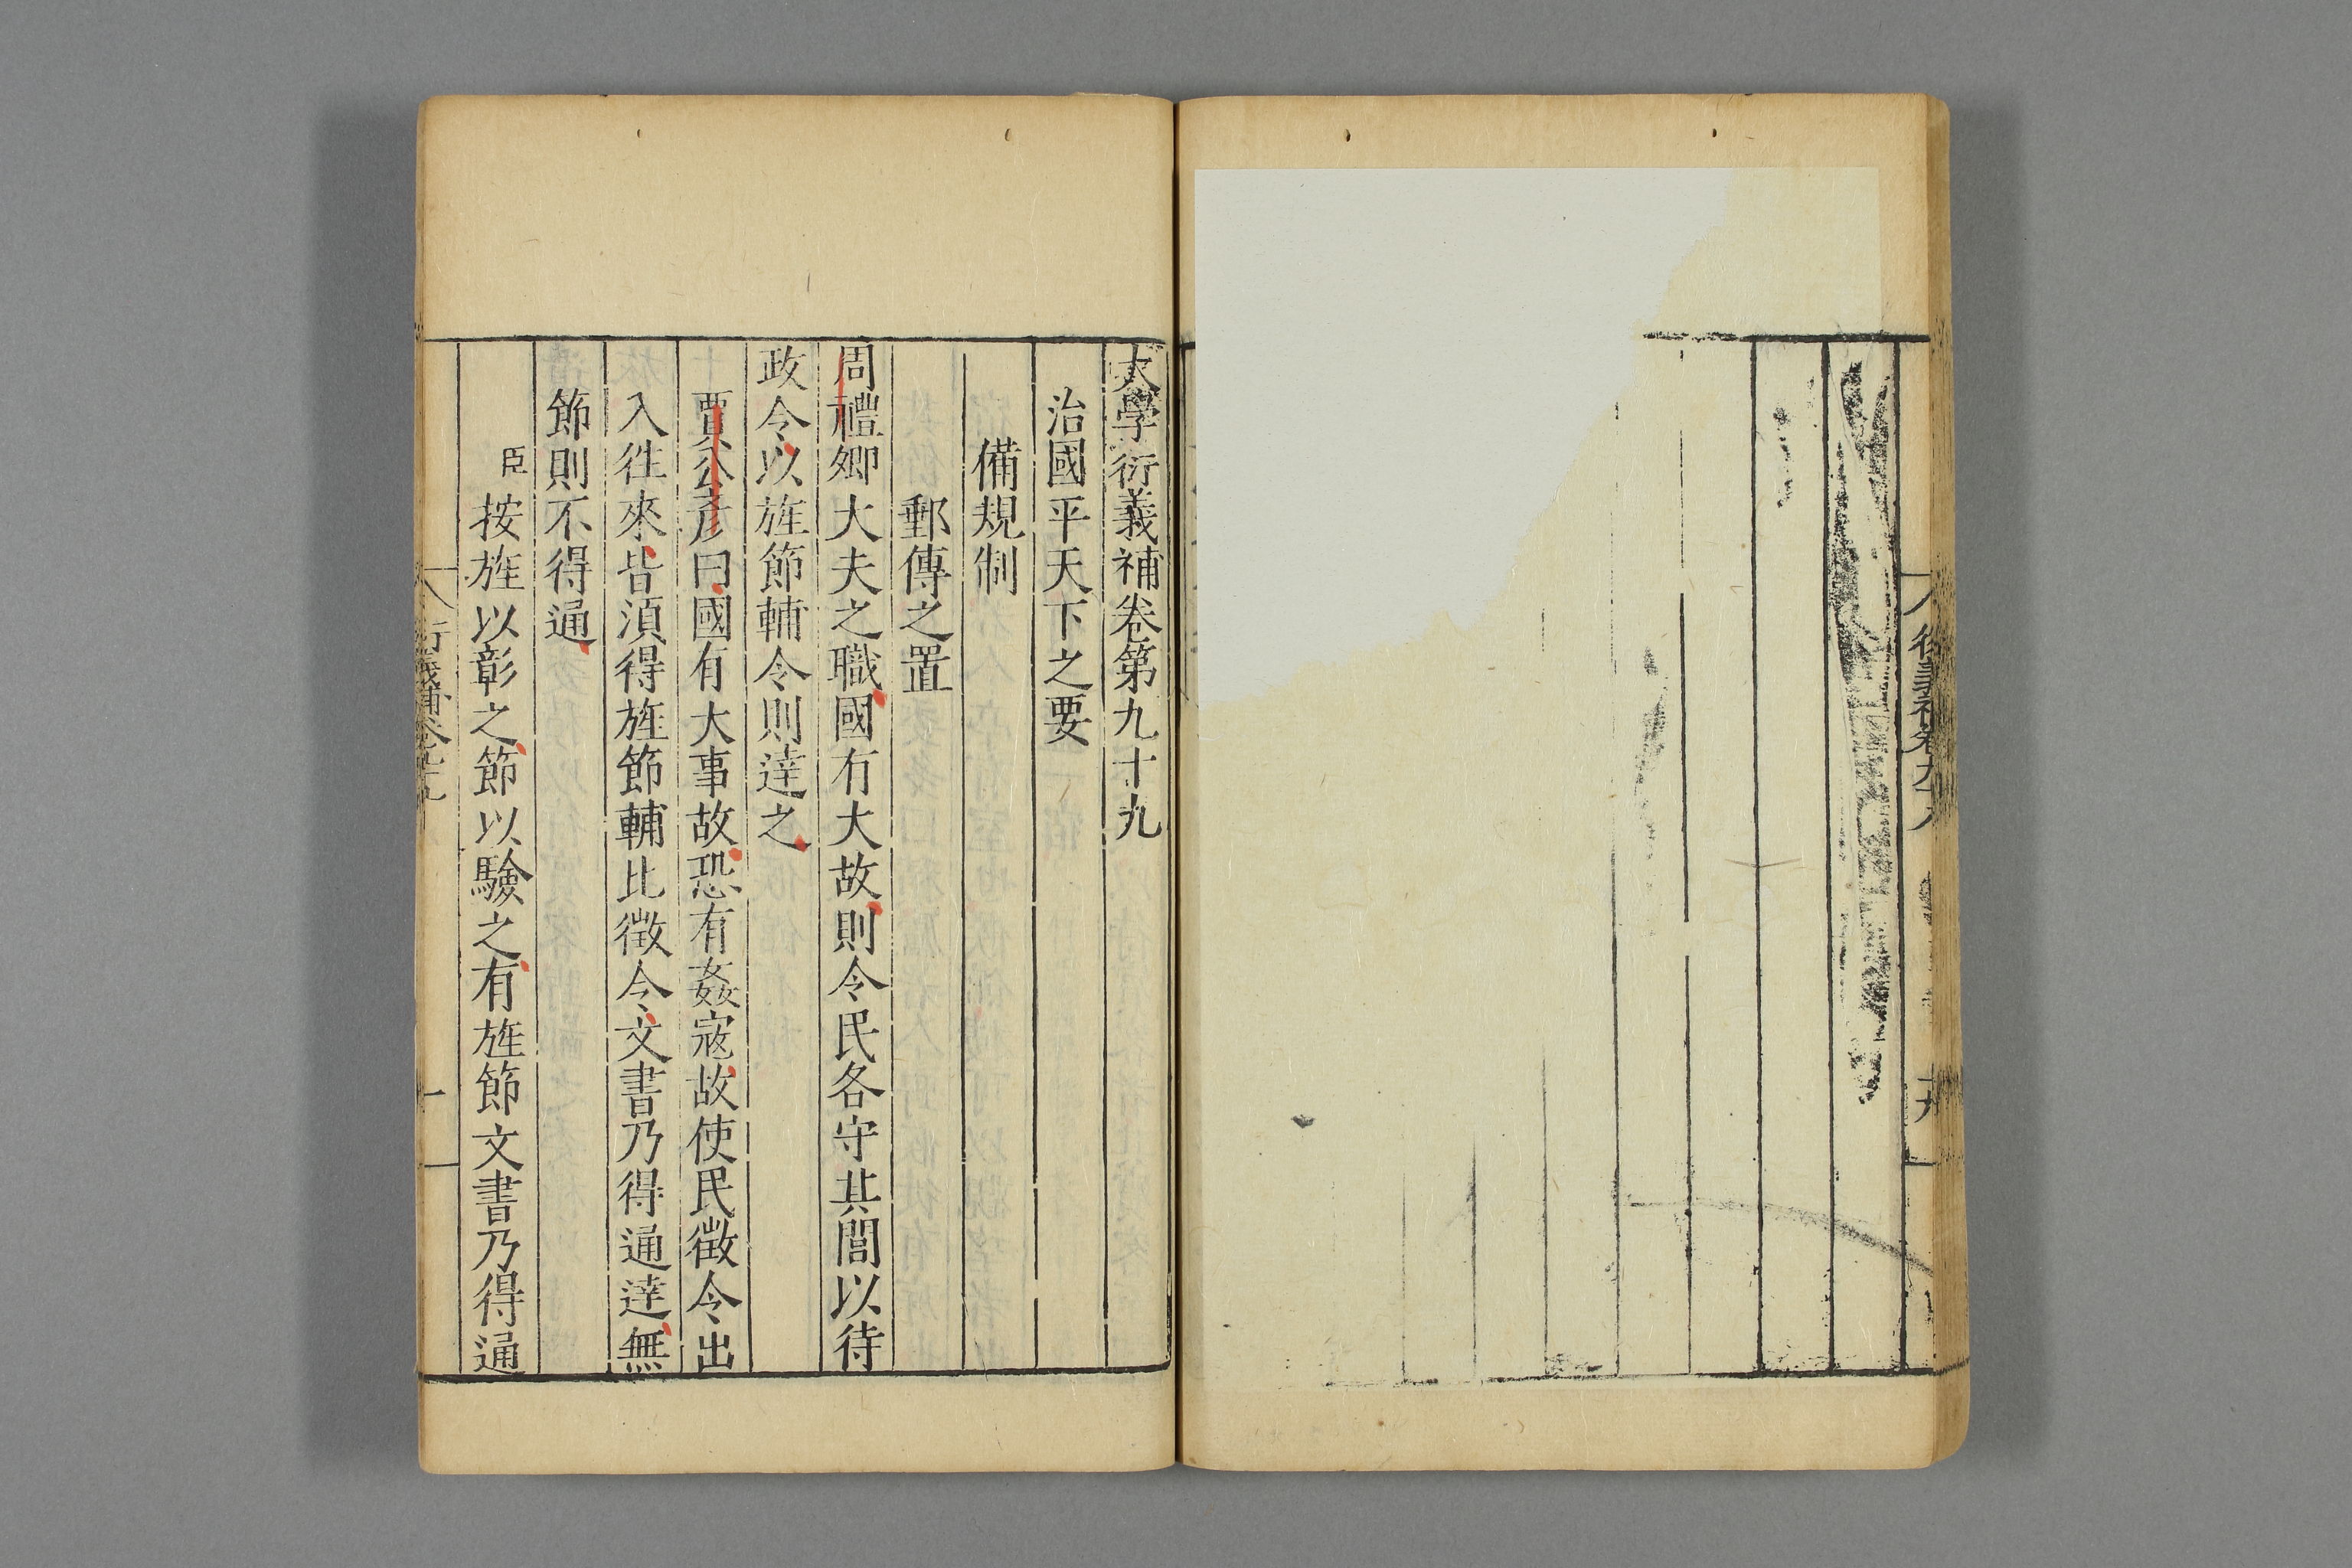 大學衍義補卷第九十九
治國平天下之要
備規制
郵傳之置
周禮鄉大夫之職國有大故則令民各守其閭以待
政令以旌節輔令則達之
賈公彥曰國有大事故恐有姦寇故使民徵令出
入徃來皆湏得旌節輔比徵令文書乃得通達無
節則不得通
臣按旌以彰之節以驗之有旌節文書乃得通
衍義補卷九十九
一